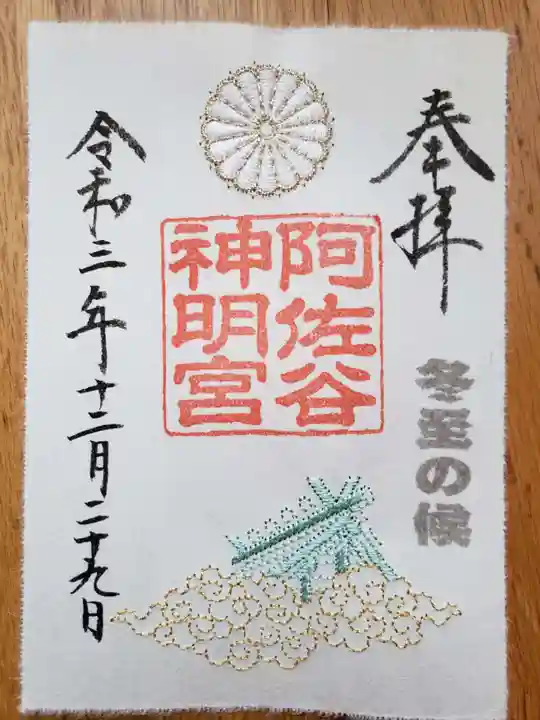 奉拝
冬至の候
阿佐谷
神明宮
令和三年十二月二十九日